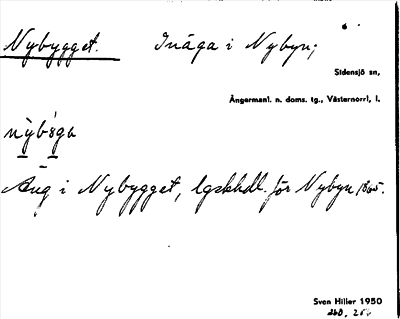 Nybygget. Inäga i Nybyn;
Sidensjö sn,
Ångermanl. n. doms. tg., Västernorrl, l.
nỳb`s̀ga
Äng i Nybygget, lgskhdl. för Nybyn 1865.
Sven Hiller 1950
260, 256